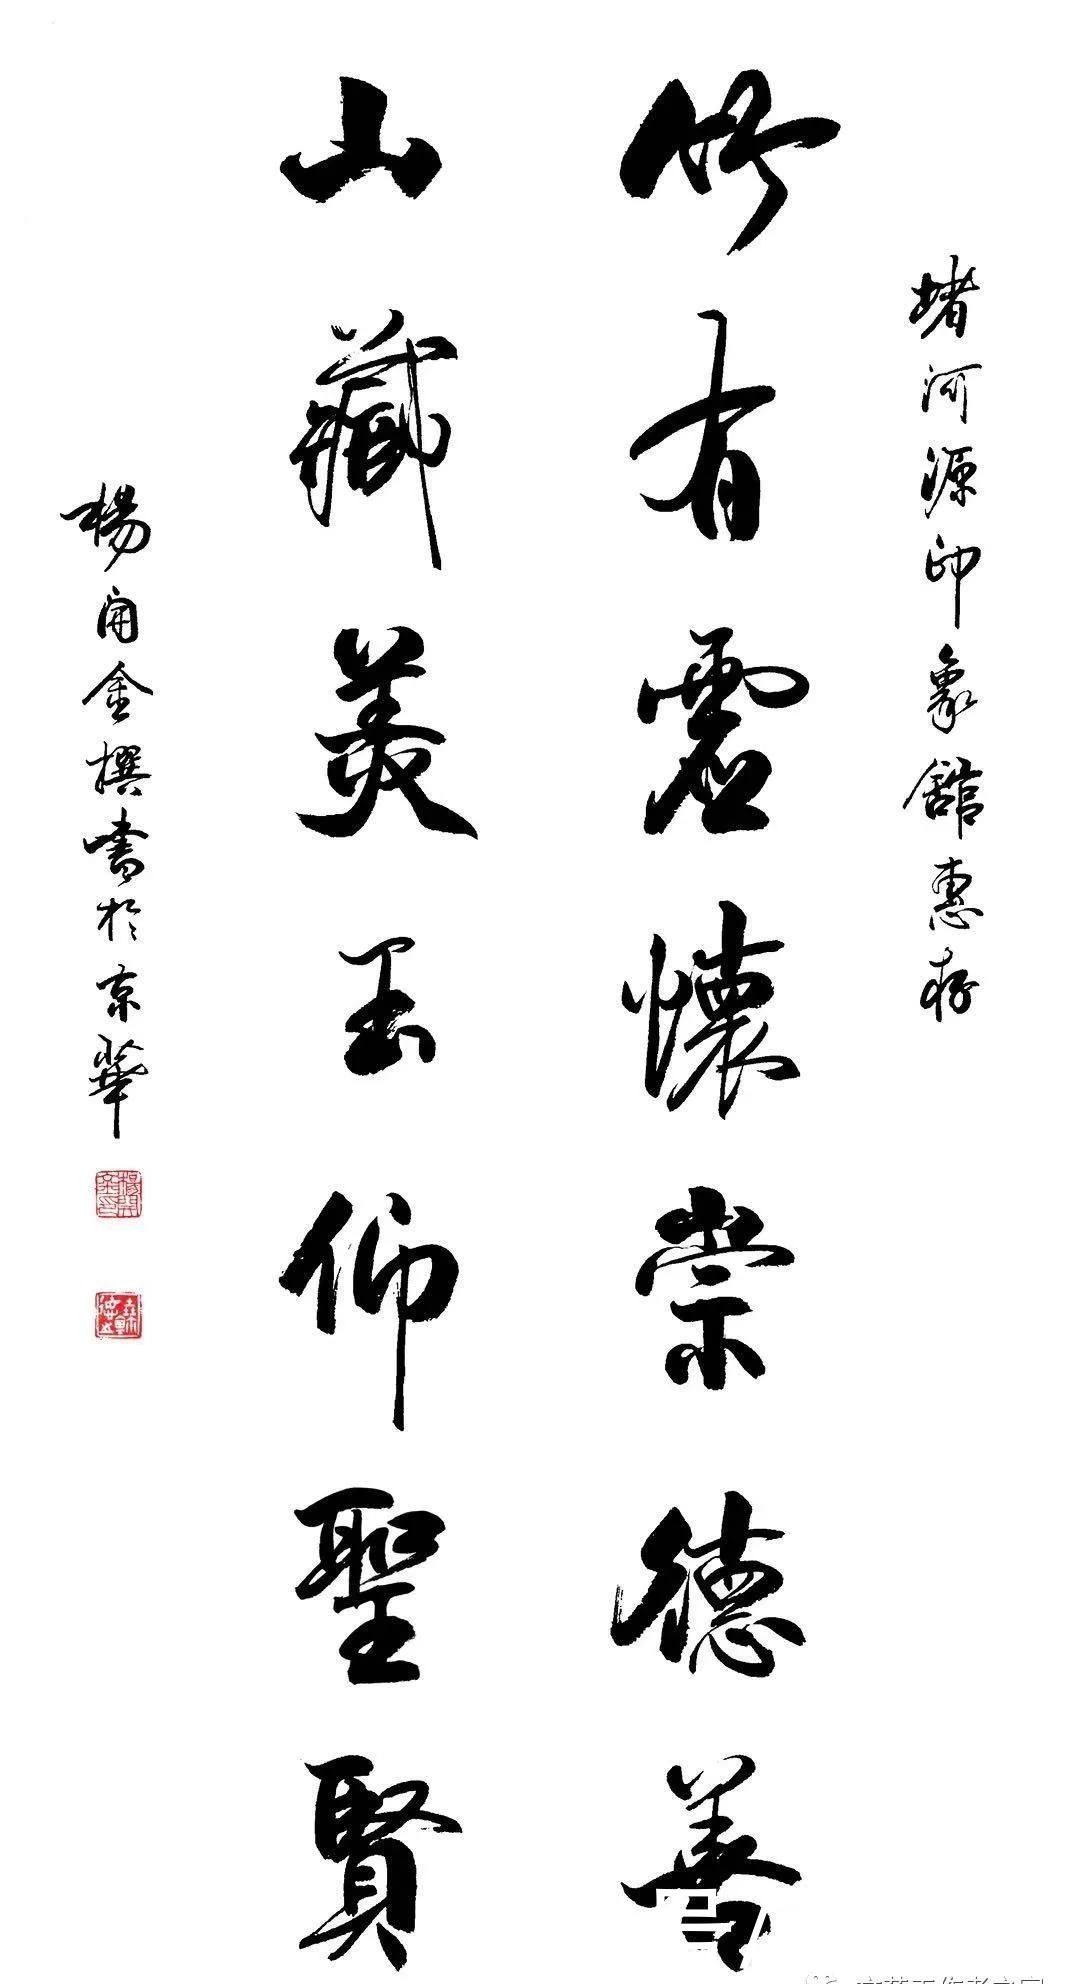 堵河源印象館惠存
竹有虛懷崇德善
山藏美玉仰聖賢
楊開金撰書於京華
楊開金印